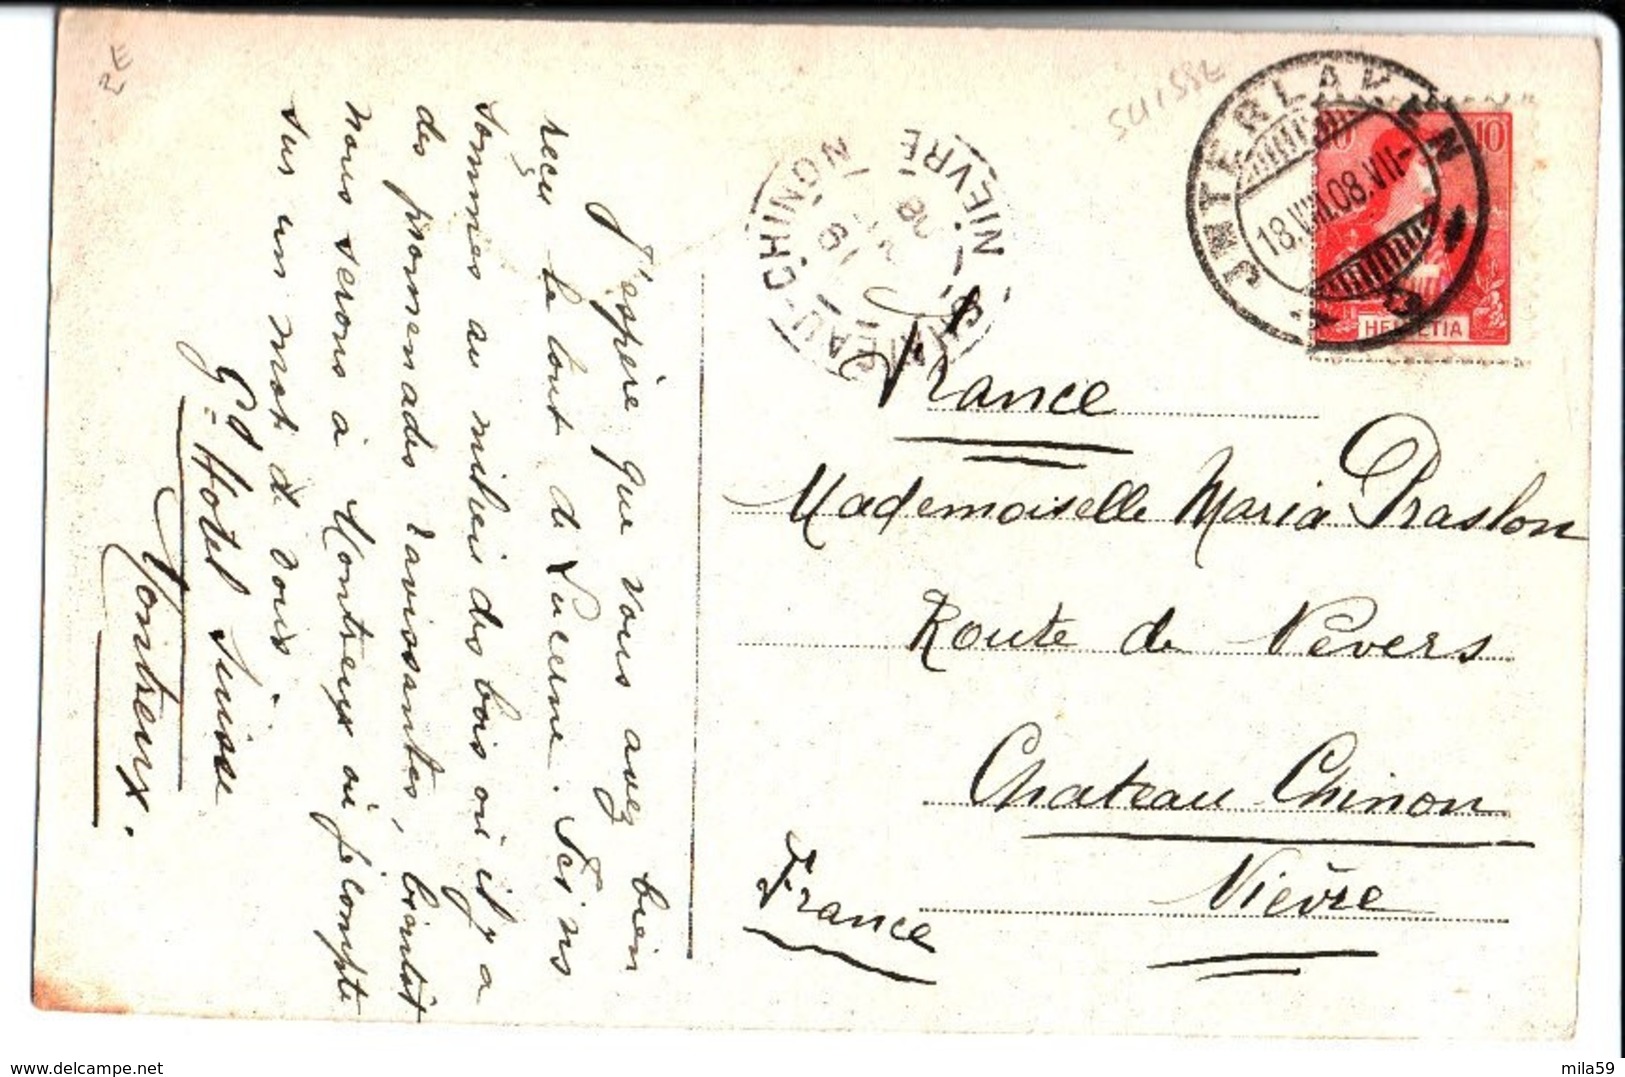 2E
SUISSE
INTERLAKEN
18.VIII.08.VII-
10
HELVETIA
CHATEAU-CHINON
NIEVRE
19
08
France
Mademoiselle Maria Praslon
Route de Nevers
Chateau Chinon
Nièvre
France
J'espère que vous avez bien
reçu le tout de Lucerne. Ici ns
sommes au milieu des bois où il y a
des promenades ravissantes, bientôt
nous serons à Montreux où je compte
sur un mot de vous
Gd Hotel Suisse
Montreux.
mila59
www.delcampe.net